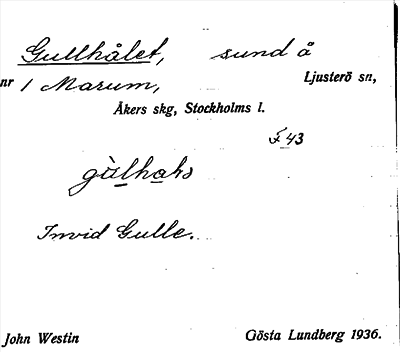 Gullhålet, sund å
nr 1 Marum, Ljusterö sn,
Åkers skg, Stockholms l.
F 43
Invid Gulle.
John Westin Gösta Lundberg 1936.